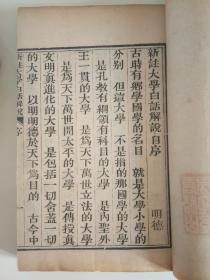 新註大學白話解說自序
明德
古時有鄉學國學的名目 就是大學小學的
分別 但這大學 不是指的那國學的大學
是孔教有綱領有科目的大學 是內聖外
王一貫的大學 是為天下萬世立法的大學
是為天下萬世開太平的大學 是傳授真
文明真進化的大學 是包括一切含蓋一切
的大學 以明明德於天下為目的 古今中